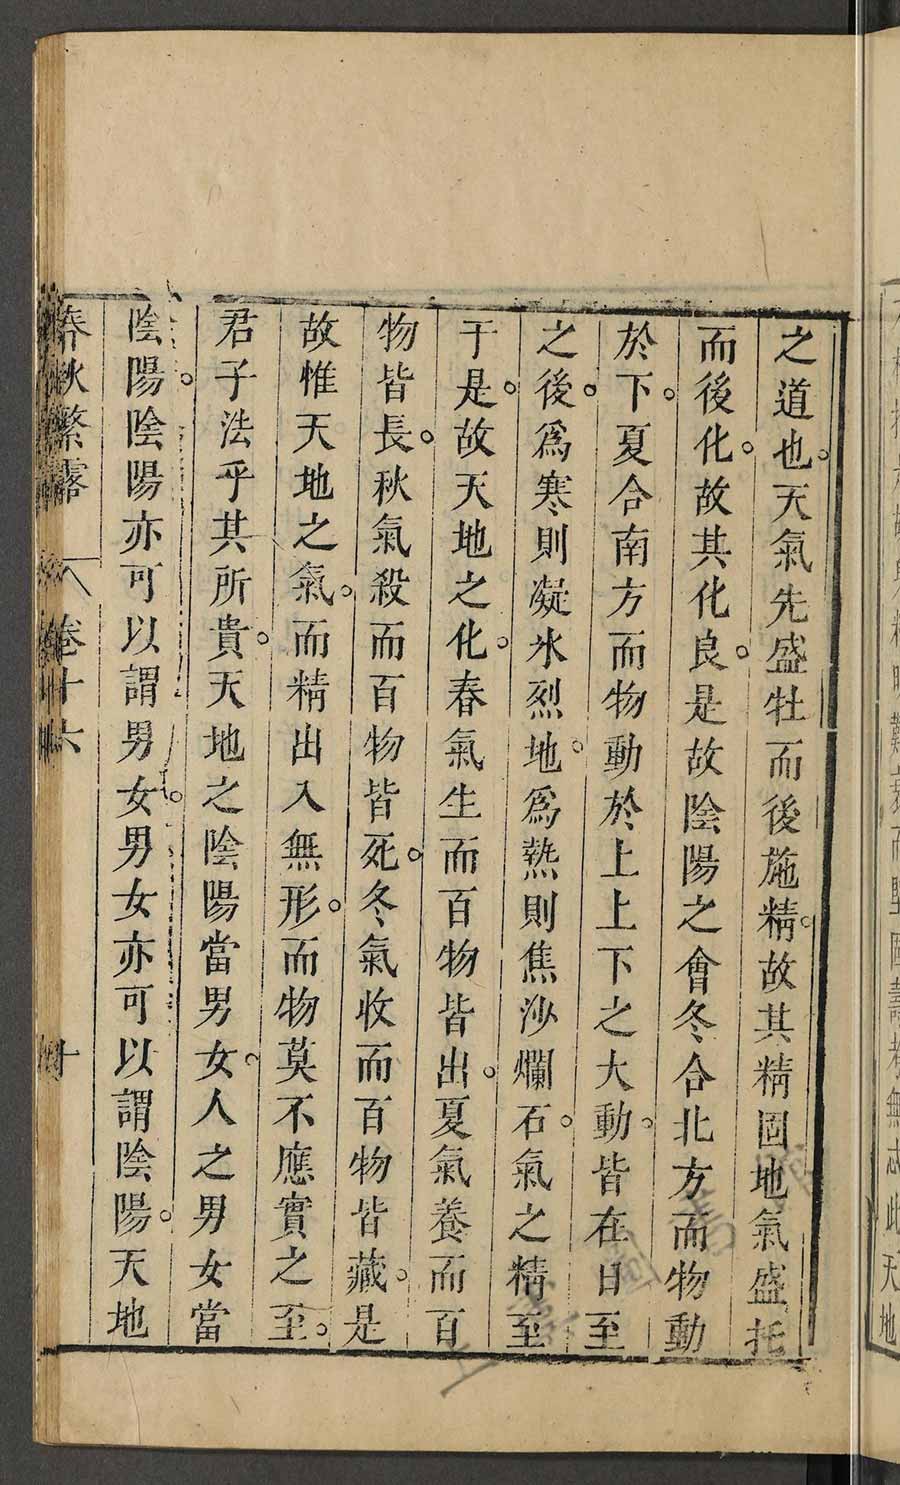 之道也。天氣先盛牡而後施精。故其精固地氣盛牝
而後化。故其化良。是故陰陽之會冬合北方而物動
於下。夏合南方而物動於上上下之大動。皆在日至
之後。爲寒則凝氷烈地。爲熱則焦沙爛石。氣之精至
于是。故天地之化。春氣生而百物皆出。夏氣養而百
物皆長。秋氣殺而百物皆死。冬氣收而百物皆藏。是
故惟天地之氣。而精出入無形。而物莫不應實之至。
君子法乎其所貴。天地之陰陽當男女。人之男女當
陰陽。陰陽亦可以謂男女。男女亦可以謂陰陽。天地
春秋繁露 卷十六 十